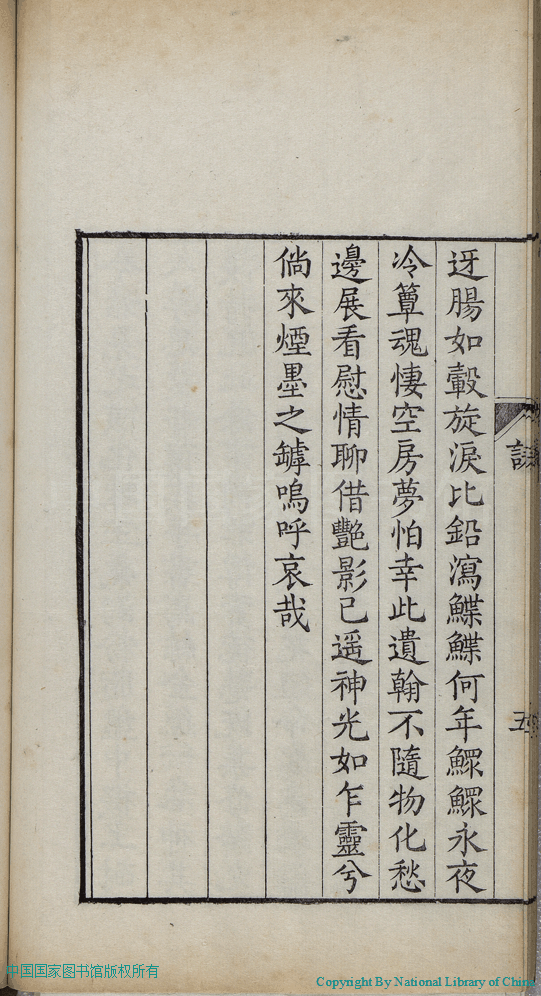 迓腸如轂旋淚比鉛瀉鰈鰈何年鰥鰥永夜
冷簟魂悽空房夢怕幸此遺翰不隨物化愁
邊展看慰情聊借艷影已遥神光如乍靈兮
倘來煙墨之罅嗚呼哀哉
五
中国国家图书馆版权所有
Copyright By National Library of China